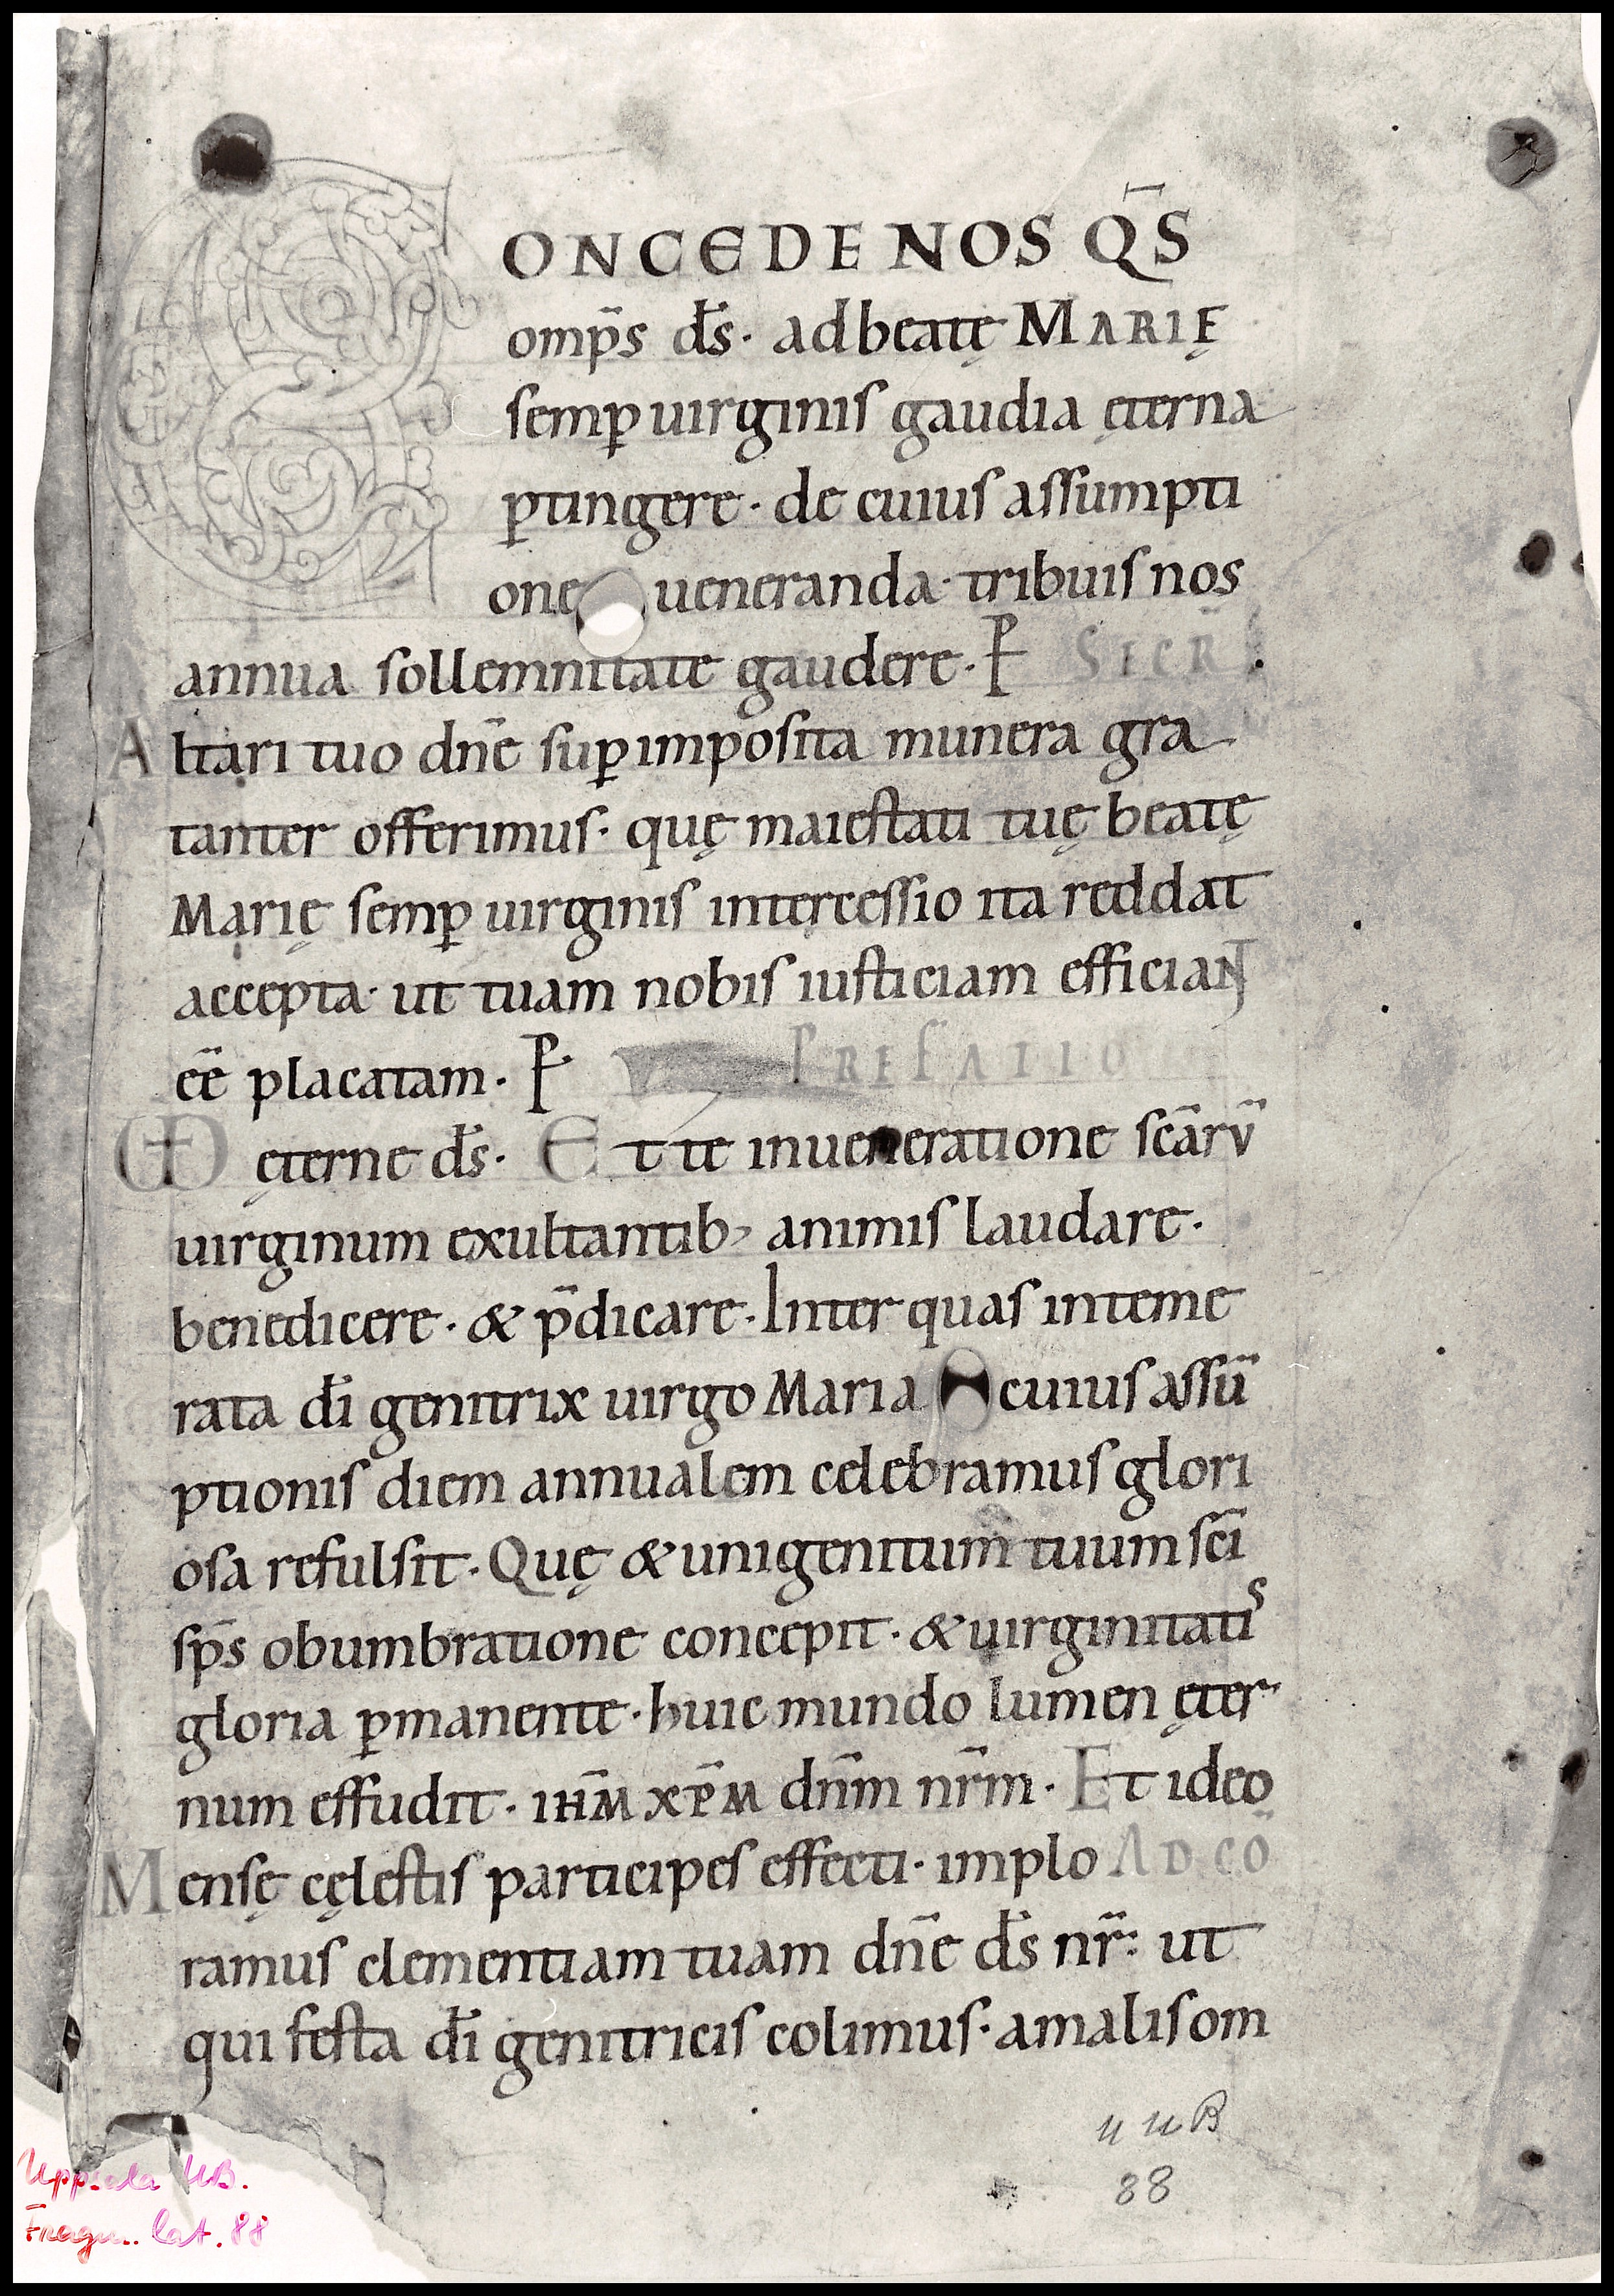 CONCEDE NOS Q̄S
omp̄s d̄s · ad beatę MARIĘ
semꝑ uirginis gaudia ęterna
ꝑtingere · de cuius assumpti
one ueneranda · tribuis nos
annua sollemnitate gaudere · P SECR̄
Altari tuo dn̄e suꝑ imposita munera gra
tanter offerimus · quę maiestati tuę beatę
Marię semꝑ uirginis intercessio ita reddat
accepta · ut tuam nobis iusticiam efficiant
ee̅ placatam · P PREFATIO
VD ęterne d̄s · Et te inueneratione scārū
uirginum exultantib; animis laudare ·
benedicere · & p̄dicare · Inter quas inteme
rata dī genitrix uirgo Maria cuius assū
ptionis diem annualem celebramus glori
osa refulsit · Quę & unigenitum tuum scī
sp̄s obumbratione concepit · & uirginitatis
gloria ꝑmanente · huic mundo lumen ęter-
num effudit · ιηм̄ xp̄м dn̄m nr̄m · Et ideo
Mensę cęlestis participes effecti · implo AD CŌ
ramus clementiam tuam dn̄e d̄s nr̄ : ut
qui festa dī genitricis colimus · amalis om
UUB
88
Uppsala UB.
Fragm. lat. 88